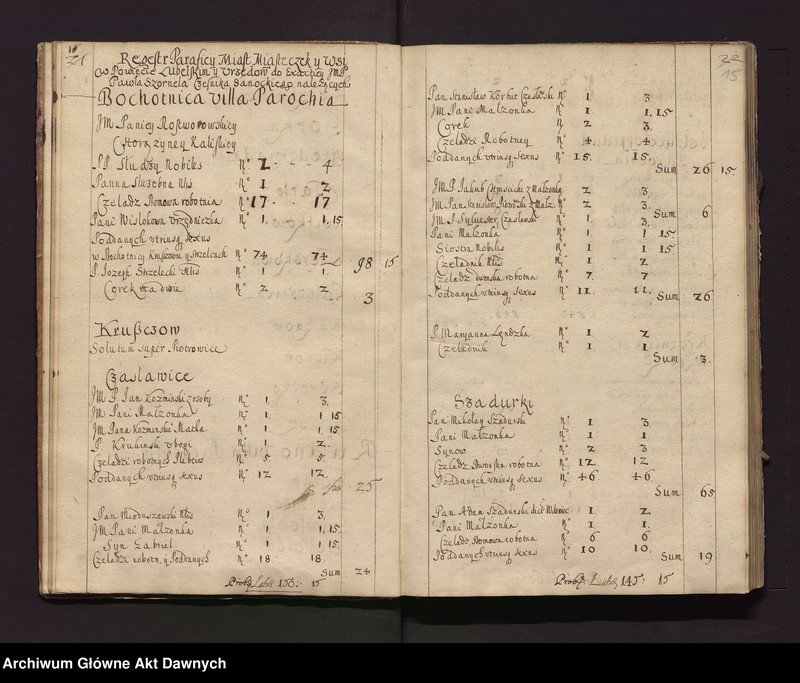 21
Regestr Parafiey Miast Miasteczek y Wsi
w Powiecie Lubelskim y Vrzędow do Exactiey JMP
Pawła Szornela Cześnika Sanockieg należących
Bochotnica Villa Parochia
JM Paniey Rostworowskiey
Chorążyney Kaliskiey
PP. Słudzy Nobiles No 2. 4.
Panna Służebna Nlis No 1. 2
Czeladz Domowa robotnia No 17 17
Pani Wisłokowa Vrzędniczka No 1. 1. 15
Poddanych vtriusq sexus
w Bochotnicy Kruszowie y Strzelcach No 74 74
98 15
P. Jozeph Strzelecki Nlis No 1. 1.
Corek ma dwie No 2 2.
3
Krußczow
Solutum super Piotrowice
Czasławice
JM P. Jan Kozminski z osoby No 1. 3.
JM Pani Małzonka No 1. 1. 15
JM Pana Kozminski Matka No 1. 1. 15
P. Krubinski vbogi No 1 2.
Czeladzi robotnych Plebeius No 5 5.
Poddanych vtriusq sexus No 12 12.
25
Pan Mioduszewski Nlis No 1 3.
JM Pani Małzonka No 1 1. 15.
Syn Gabriel No 1 1. 15.
Czeladzi robotn. y Poddanych No 18. 18.
Sum 24
15
22
15
Pan Stanisław Korbut No 1 3.
JM Pani Małzonka No 1 1. 15
Corek No 2 3.
Czeladzi Robotney No 4 4
Poddanych vtriusq sexus No 15. 15.
Sum 26 15
JM P. Jakub z Małzonką 2 3.
JM Pan Stanisław z Małz. No 2 3.
Sum 6
JM P. Sylwester Czasławski No 1 3.
Pani Małzonka No 1 1 15
Siostra Nobilis No 1 1 15
Czeladnik Nlis No 1 2
Czeladz dworska robotna No 7 7.
Poddanych vtriusq sexus No 11. 11.
Sum 26
P. Maryanna Lendzka No 1 2
Czeladnik No 1 1
Sum 3.
Szadurki
Pan Mikołay Szadurski No 1 3
Pani Małzonka No 1 1
Synow No 2 3
Czeladz Dworska robotna No 12 12
Poddanych vtriusq sexus No 46 46.
Sum 65
Pan Adam Szadurski No 1 2
Pani Małzonka No 1 1.
Czeladz Domowa robotna No 6 6
Poddanych vtriusq sexus No 10 10.
Sum 19
145 15
Archiwum Główne Akt Dawnych